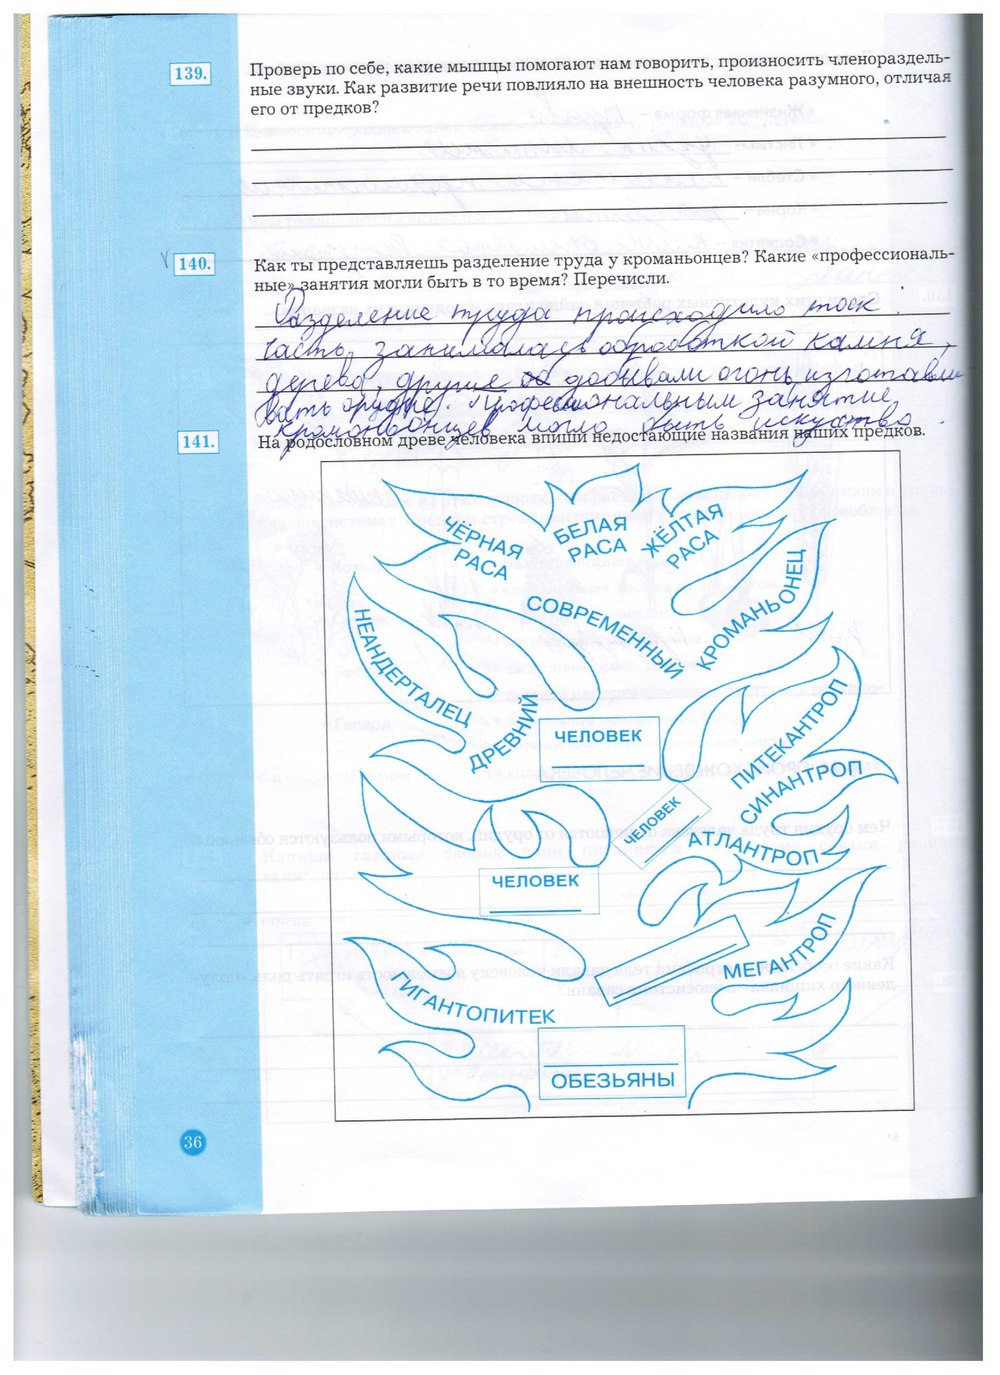 139.
Проверь по себе, какие мышцы помогают нам говорить, произносить членораздель-
ные звуки. Как развитие речи повлияло на внешность человека разумного, отличая
его от предков?
140.
Как ты представляешь разделение труда у кроманьонцев? Какие «профессиональ-
ные» занятия могли быть в то время? Перечисли.
Разделение труда происходило так :
часть занималась обработкой камня,
дерева, другие добывали огонь, изготавли
вать орудия. Профессиональным занятие
кроманьонцев могло быть искуство
141.
На родословном древе человека впиши недостающие названия наших предков.
ЧЁРНАЯ
РАСА
БЕЛАЯ
РАСА
ЖЁЛТАЯ
РАСА
СОВРЕМЕННЫЙ
КРОМАНЬОНЕЦ
НЕАНДЕРТАЛЕЦ
ДРЕВНИЙ
ЧЕЛОВЕК
ПИТЕКАНТРОП
СИНАНТРОП
ЧЕЛОВЕК
АТЛАНТРОП
ЧЕЛОВЕК
МЕГАНТРОП
ГИГАНТОПИТЕК
ОБЕЗЬЯНЫ
36